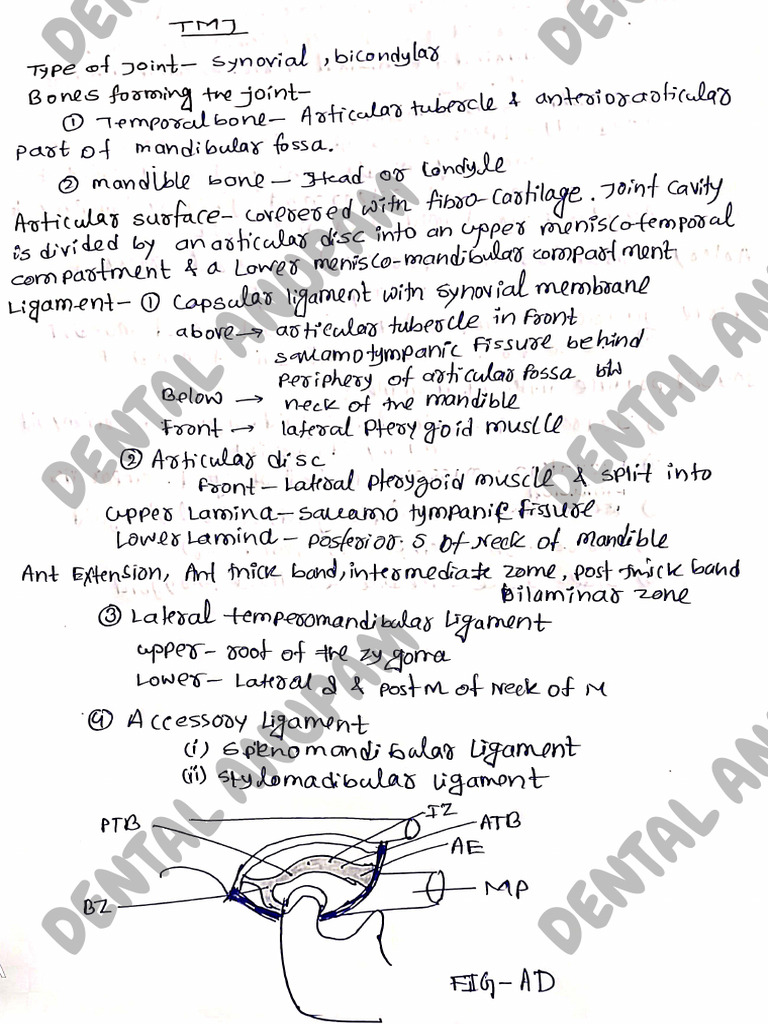 TMJ
Type of Joint- synovial, bicondylar
Bones forming the joint-
① Temporal bone- Articular tubercle & anterior articular
part of mandibular fossa.
② mandible bone - Head or Condyle
Articular surface- coverered with fibro-Cartilage. Joint cavity
is divided by an articular disc into an upper meniscotemporal
compartment & a Lower menisco-mandibular compartment
Ligament- ① Capsular ligament with synovial membrane
above → articular tubercle in front
squamotympanic Fissure behind
periphery of articular fossa b/w
Below → neck of the mandible
Front → lateral pterygoid muscle
② Articular disc
Front - Lateral pterygoid muscle & split into
upper Lamina - Squamo tympanic fissure.
Lower Lamina - posterior S of Neck of Mandible
Ant Extension, Ant thick band, intermediate zone, post thick band
Bilaminar zone
③ Lateral temperomandibular Ligament
upper- root of the zygoma
Lower - Lateral S & post M of Neck of M
④ Accessory Ligament
(i) Sphenomandibular Ligament
(ii) Stylomadibular Ligament
PTB
IZ
ATB
AE
MP
BZ
FIG-AD
DENTAL ANUPAM
DENTAL ANUPAM
DENTAL ANUPAM
DENTAL ANUPAM